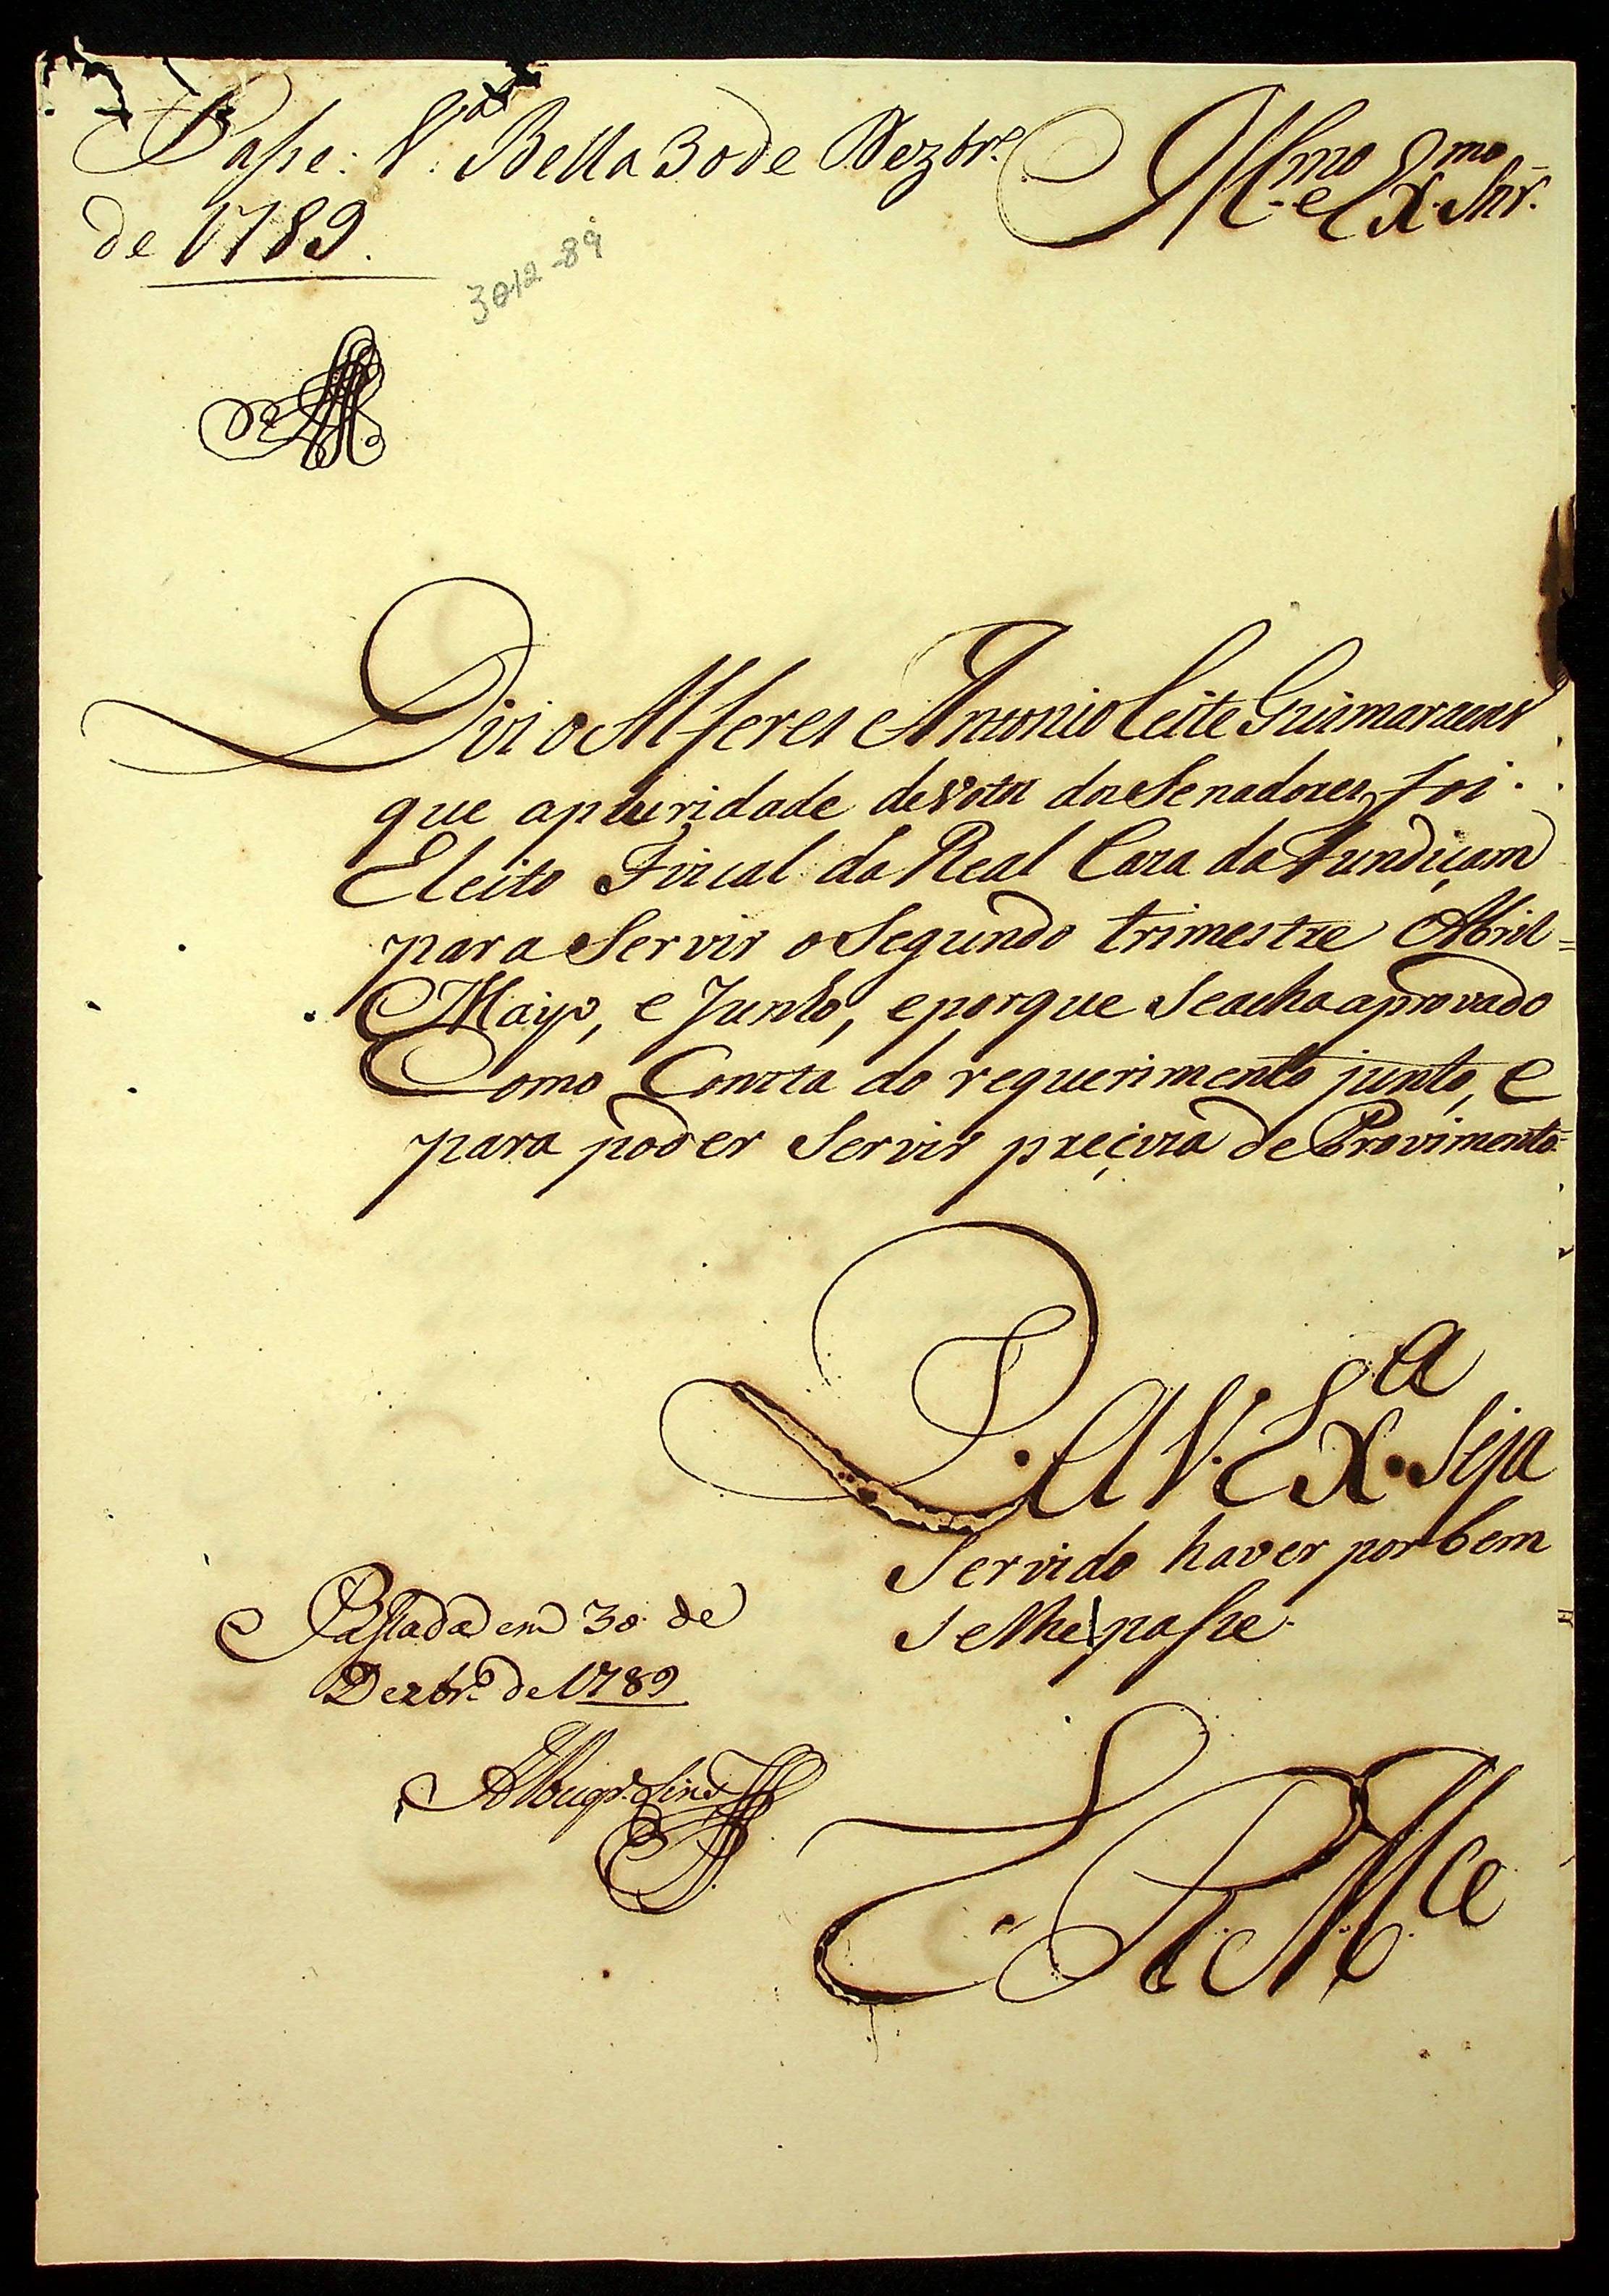 Passe. V.ª Bella 30 de Dezbr.º
de 1789.
30 12 - 89
Illmo. e Exmo. Snr.
Diz o Alferes Antonio Leite Guimaraens
que apluridade devotos dos Senadores, foi
Eleito Fiscal da Real Caza da Fundiçam
para Servir o Segundo trimestre Abril=
Mayo, e Junho, eporque Seachaaprovado
Como Consta do requerimento junto, e
para poder Servir preçiza de Provimento=
P. a V. Exª. Seja
Servido haver por bem
selhe passe.
Passada em 30 de
Dezbr.º de 1789
E. R. M.ce